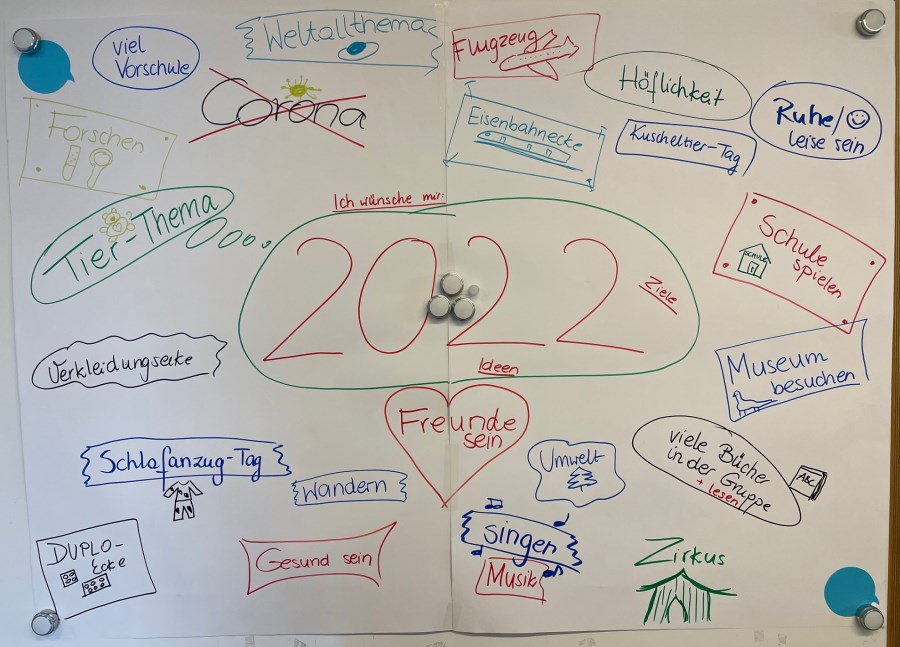 viel
Vorschule
Weltallthema
Flugzeug
Höflichkeit
Ruhe/
leise sein
Corona
Eisenbahnecke
Kuscheltier-Tag
Forschen
Ich wünsche mir:
Tier-Thema
2022
Ziele
Ideen
Schule
spielen
SCHULE
Verkleidungsecke
Museum
besuchen
Freunde
sein
Schlafanzug-Tag
Wandern
Umwelt
viele Bücher
in der Gruppe
+ lesen
ABC
DUPLO-
Ecke
Gesund sein
singen
Musik
Zirkus